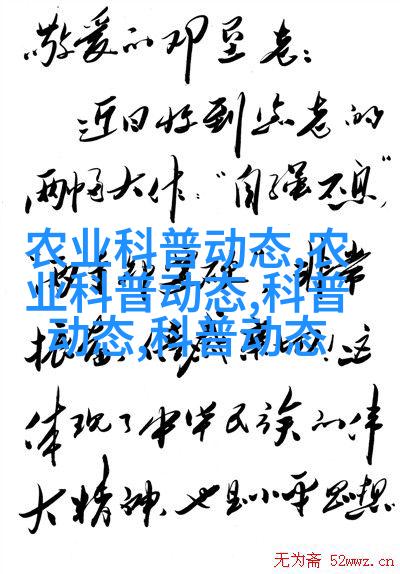 敬爱的邓垦老：
近日收到您老的
两幅大作：“自强不息”
农业科普动态,农
业科普动态,科普
动态,科普动态
非常
振奋
这
体现了中华民族的伟
大精神，也是小平思想
无为斋 52wwz.cn